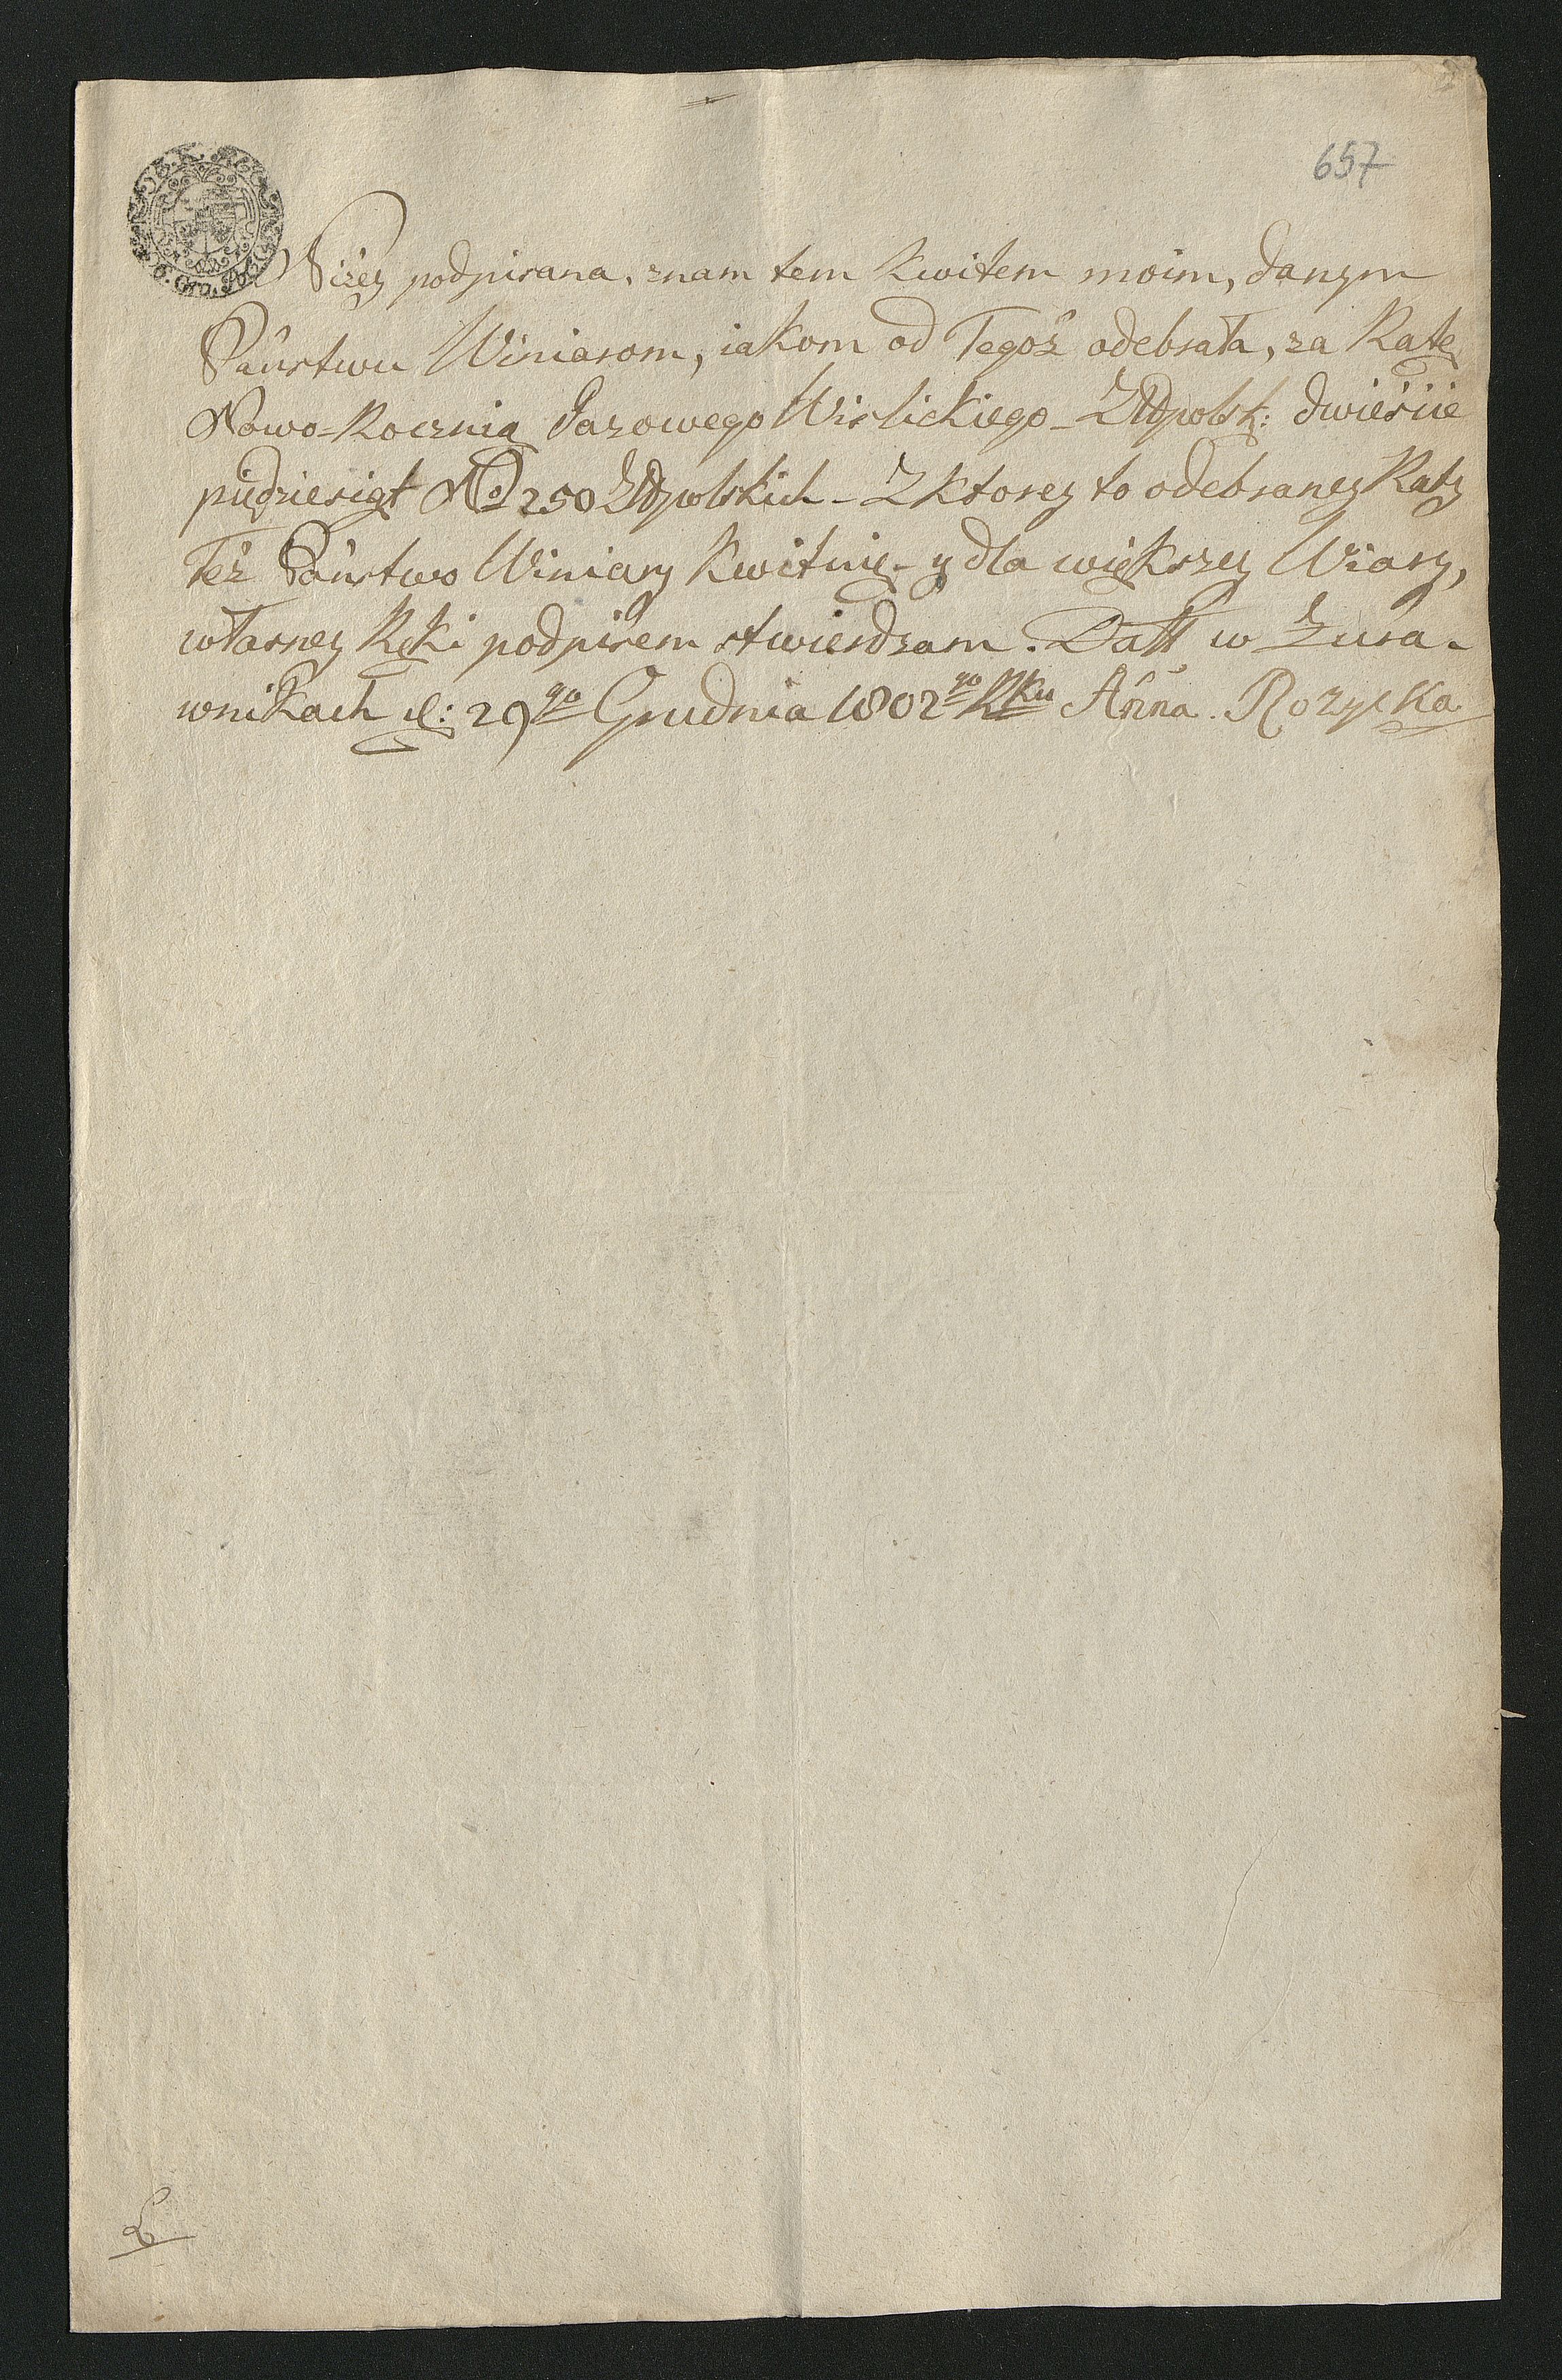 657
Niżey podpisana, znam tem Kwitem moim, danym
Państwu Winiarom, iakom od Tegoż odebrała, za Ratę
Nowo-Rocznią Wislickiego – Złłpolsk: dwieście
piędziesiąt No 250 Złłpolskich – Z ktorey to odebraney Raty
Też Państwo Winiary Kwituię – y dla większey Wiary,
własney Ręki podpisem stwierdzam. Datt w Żura-
wnikach d: 29go Grudnia 1802go Rku Anna Rozycka